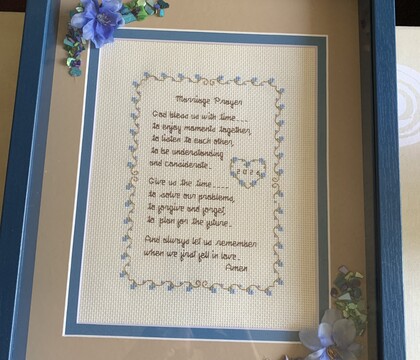 Marriage Prayer
God bless us with time....
to enjoy moments together,
to listen to each other,
to be understanding
and considerate.
2024
Give us the time....
to solve our problems,
to forgive and forget,
to plan for the future.
And always let us remember
when we first fell in love.
Amen